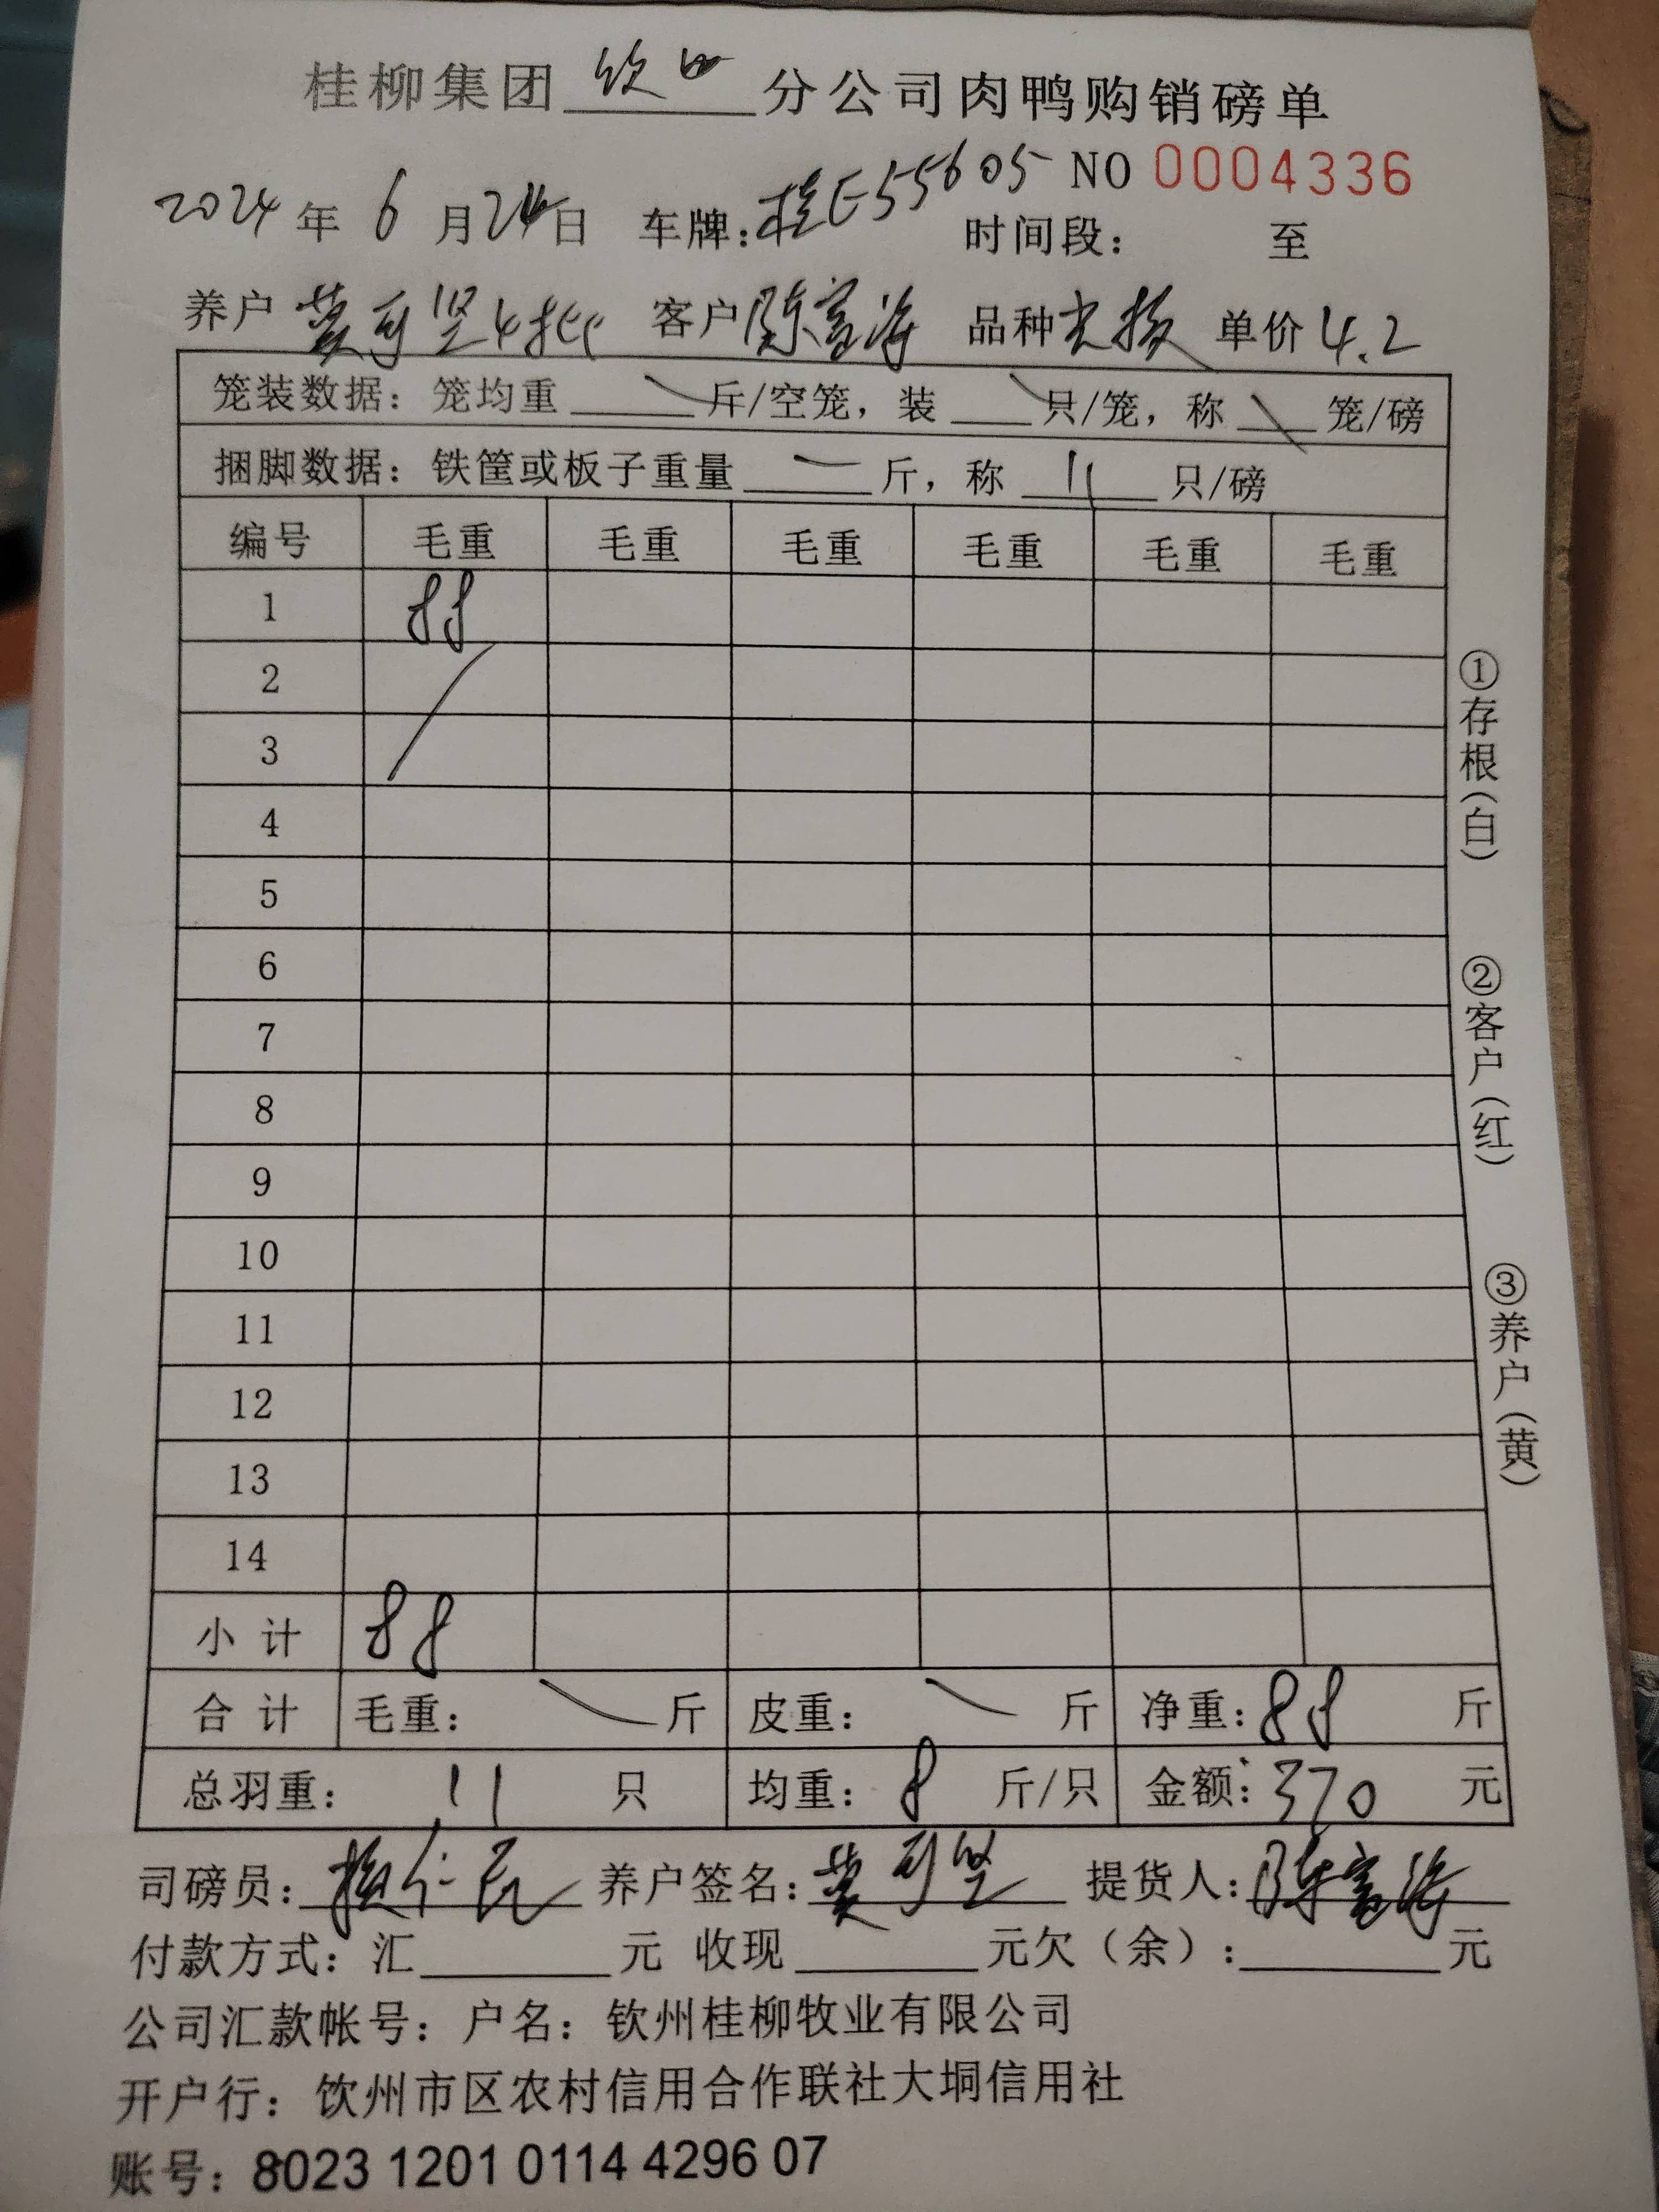 桂柳集团 钦四 分公司肉鸭购销磅单
NO 0004336
2024 年 6 月 24 日 车牌:桂E55605 时间段: 至
养户 莫可坚4批 客户 陈富海 品种 单价 4.2
笼装数据: 笼均重 斤/空笼, 装 只/笼, 称 笼/磅
捆脚数据: 铁筐或板子重量 斤, 称 11 只/磅
编号 毛重 毛重 毛重 毛重 毛重 毛重
1 88
2
3
4
5
6
7
8
9
10
11
12
13
14
小计 88
合计 毛重: 斤 皮重: 斤 净重:88 斤
总羽重: 11 只 均重: 8 斤/只 金额:370 元
司磅员: 养户签名:莫可坚 提货人:陈富海
付款方式: 汇 元 收现 元欠(余): 元
公司汇款帐号: 户名: 钦州桂柳牧业有限公司
开户行: 饮州市区农村信用合作联社大垌信用社
账号: 8023 1201 0114 4296 07
①存根(白)
②客户(红)
③养户(黄)